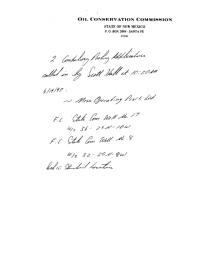 OIL CONSERVATION COMMISSION
STATE OF NEW MEXICO
P. O. BOX 2088 - SANTA FE
87501
2 Compulsory Pooling Applications
called in by Scott Hall at 10:20 AM
~ Mesa Operating
F.C. State Com Well No 17
W/2 36-29N-10W
F.C. State Com Well No
W/2 32-29N-8W
Standard Location